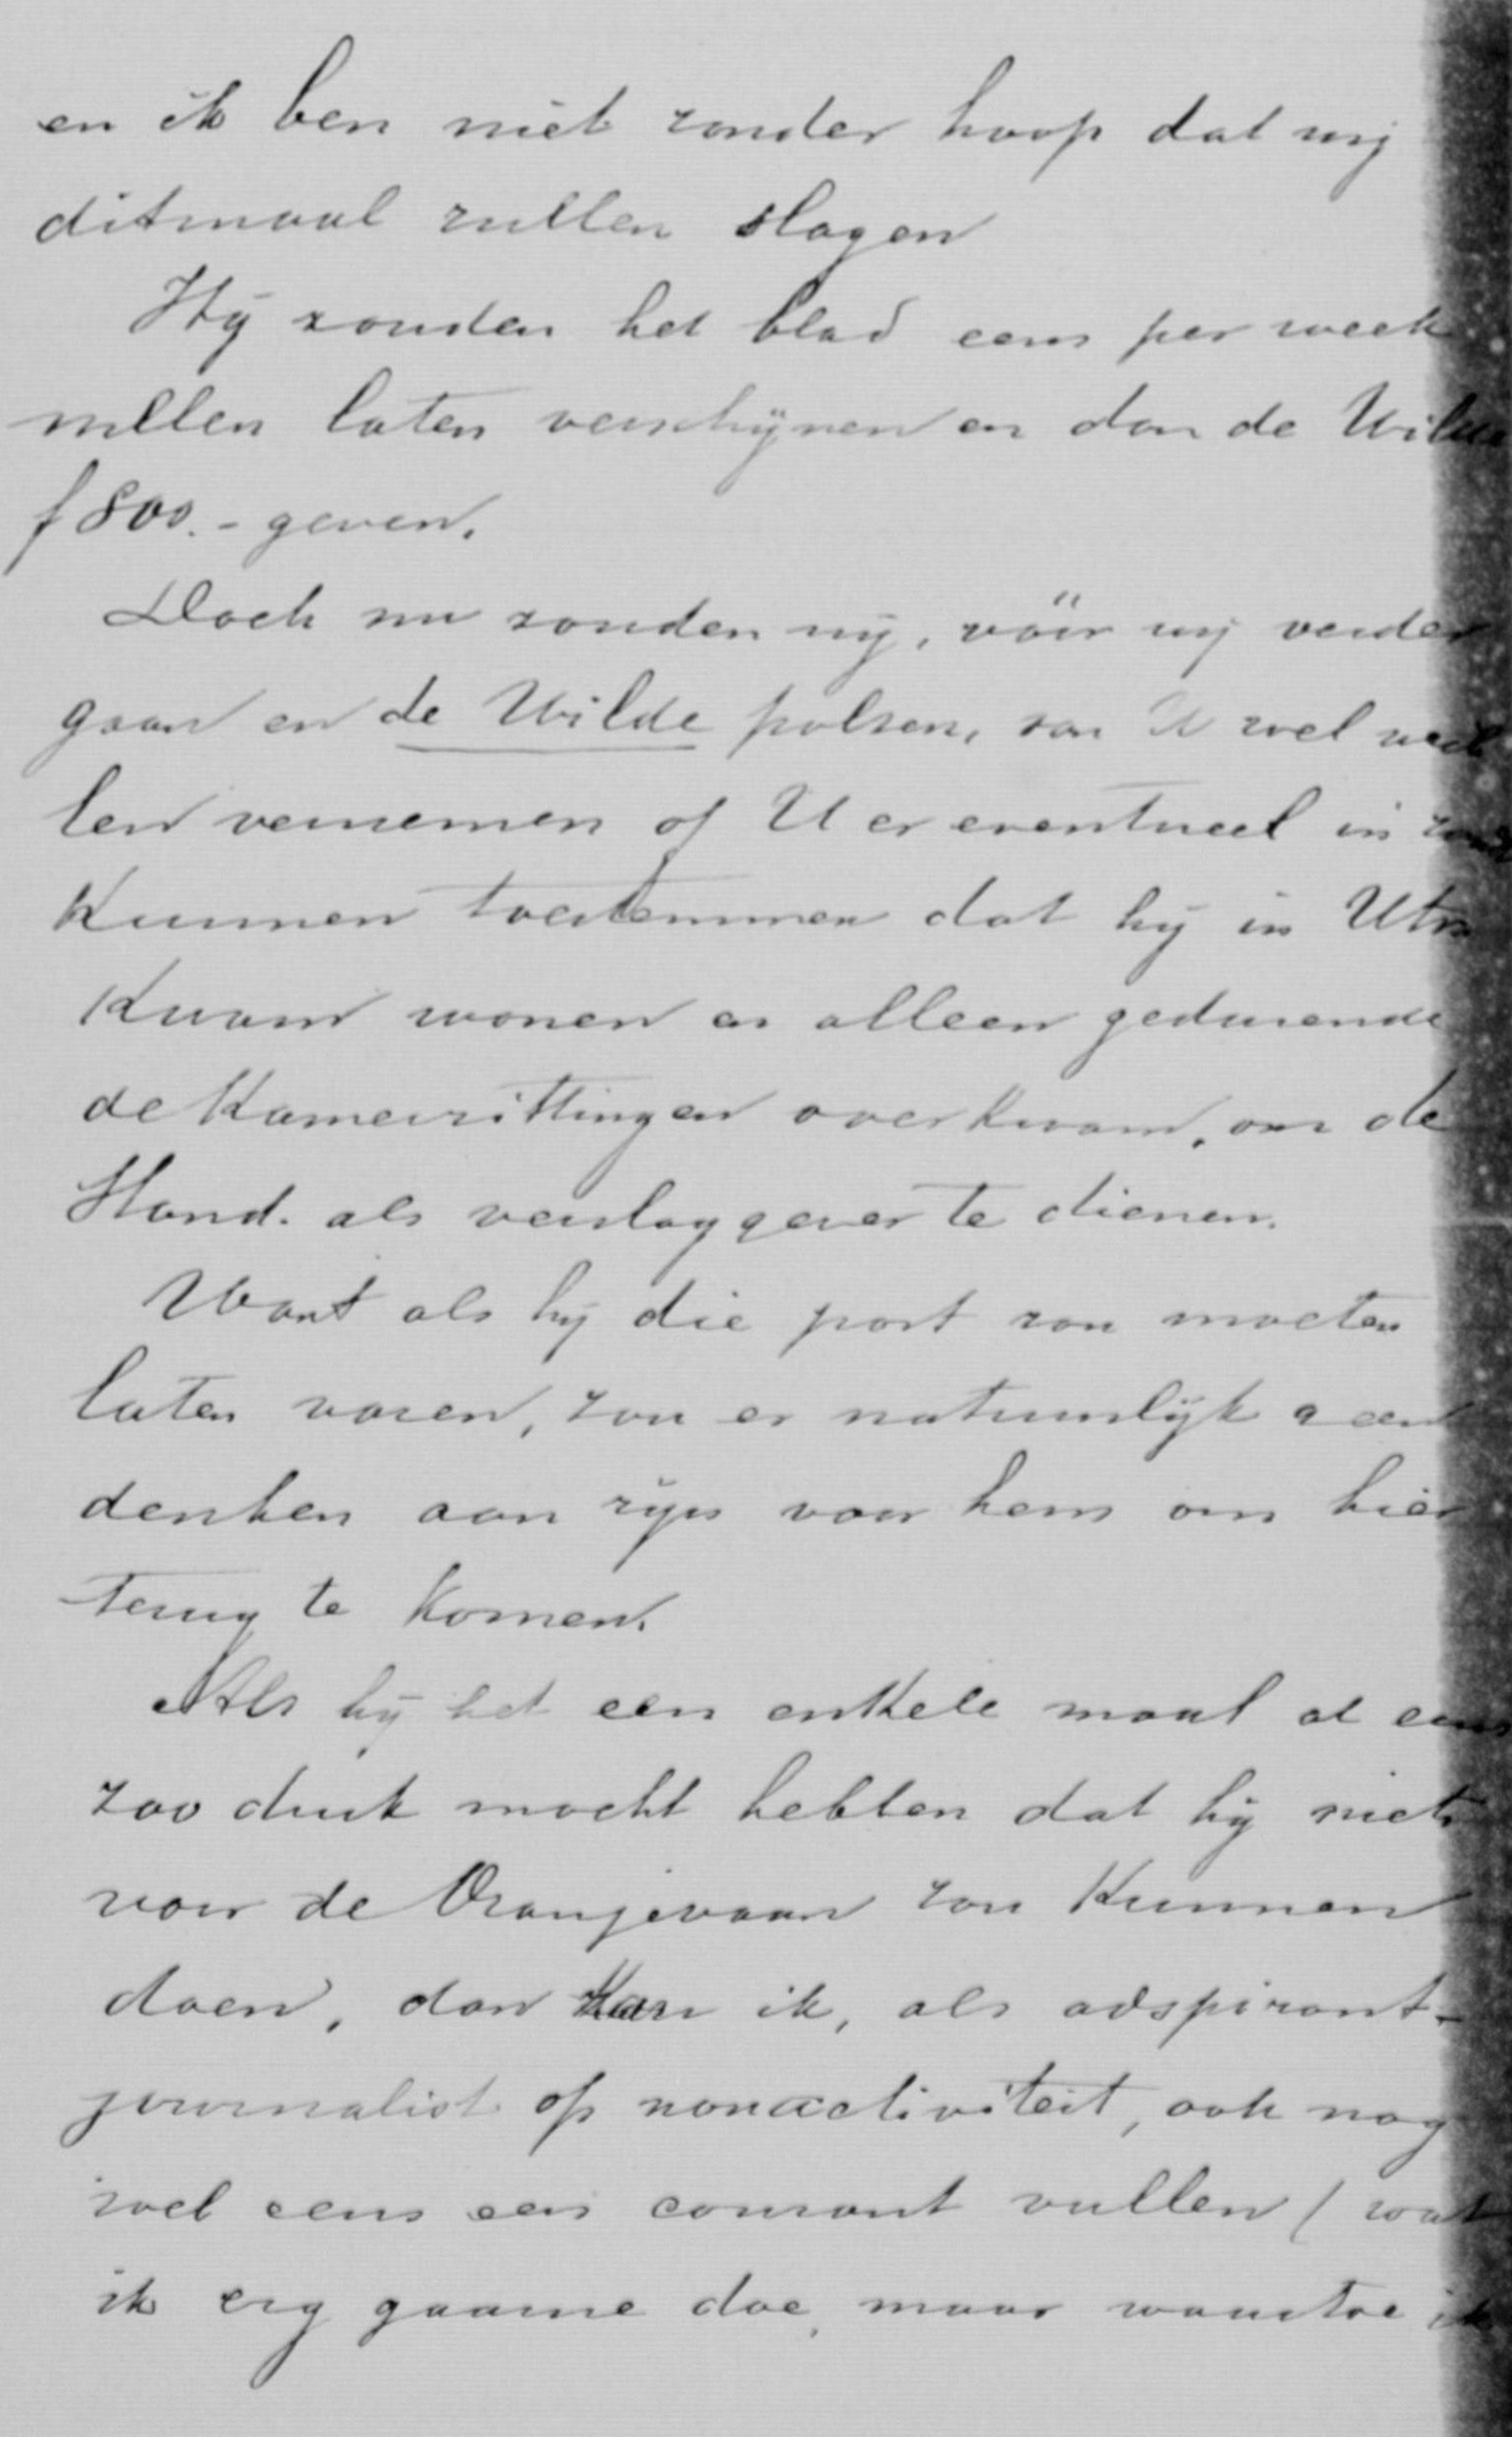 en ik ben niet zonder hoop dat wij
ditmaal zullen slagen
Wij zouden het blad eens per week
willen laten verschijnen en dan de Wilde
f 800.- geven.
Doch nu zouden wij, vóór wij verder
gaan en de Wilde polsen, van U wel wil
len vernemen of U er eventueel in zou
kunnen toestemmen dat hij in Utre
kwam wonen en alleen gedurende
de Kamerzittingen overkwam, om de
Stand. als verslaggever te dienen.
Want als hij die post zou moeten
laten varen, zou er natuurlijk geen
denken aan zijn voor hem om hier
terug te komen.
Als hij het een enkele maal al eens
zoo druk mocht hebben dat hij niets
voor de Oranjevaan zou kunnen
doen, dan kan ik, als adspirant-
journalist op nonactiviteit, ook nog
wel eens een courant vullen (wat
ik erg gaarne doe, maar waartoe ik